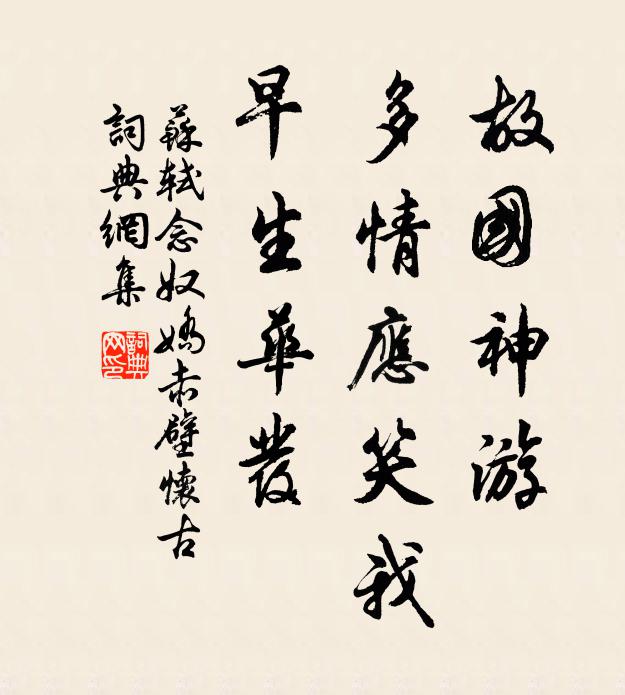 故國神游
多情應笑我
早生華發
蘇軾念奴嬌赤壁懷古
詞典網集
詞典网印